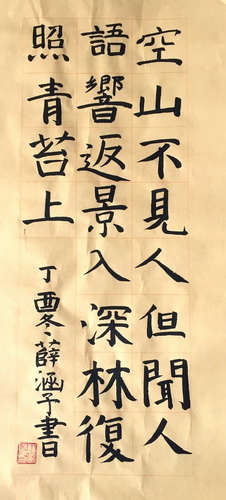 空山不見人但聞人
語響返景入深林復
照青苔上
丁酉冬薛涵予書